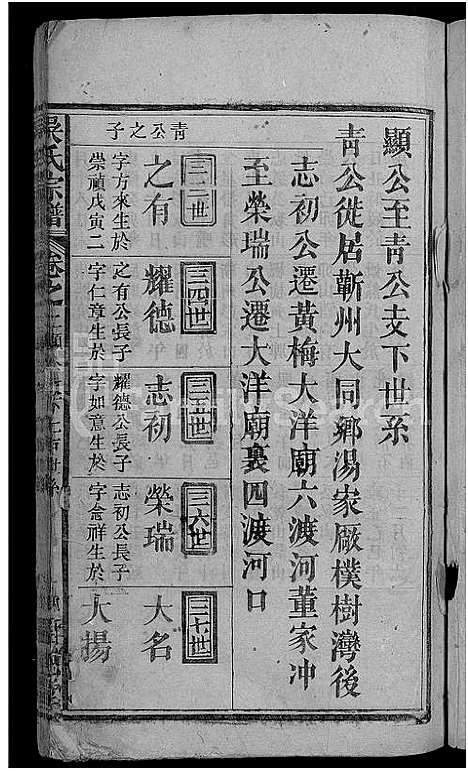 顯公至青公支下世系
青公徙居蘄州大同鄉湯家廠樸樹灣後
志初公遷黃梅大洋廟六渡河董家冲
至榮瑞公遷大洋廟裏四渡河口
青公之子
三三世
之有
字方來生於
崇禎戊寅二
三四世
耀德
之有公長子
字仁章生於
三五世
志初
耀德公長子
字如意生於
三六世
榮瑞
志初公長子
字念祥生於
三七世
大名
大揚
吳氏宗譜
卷之